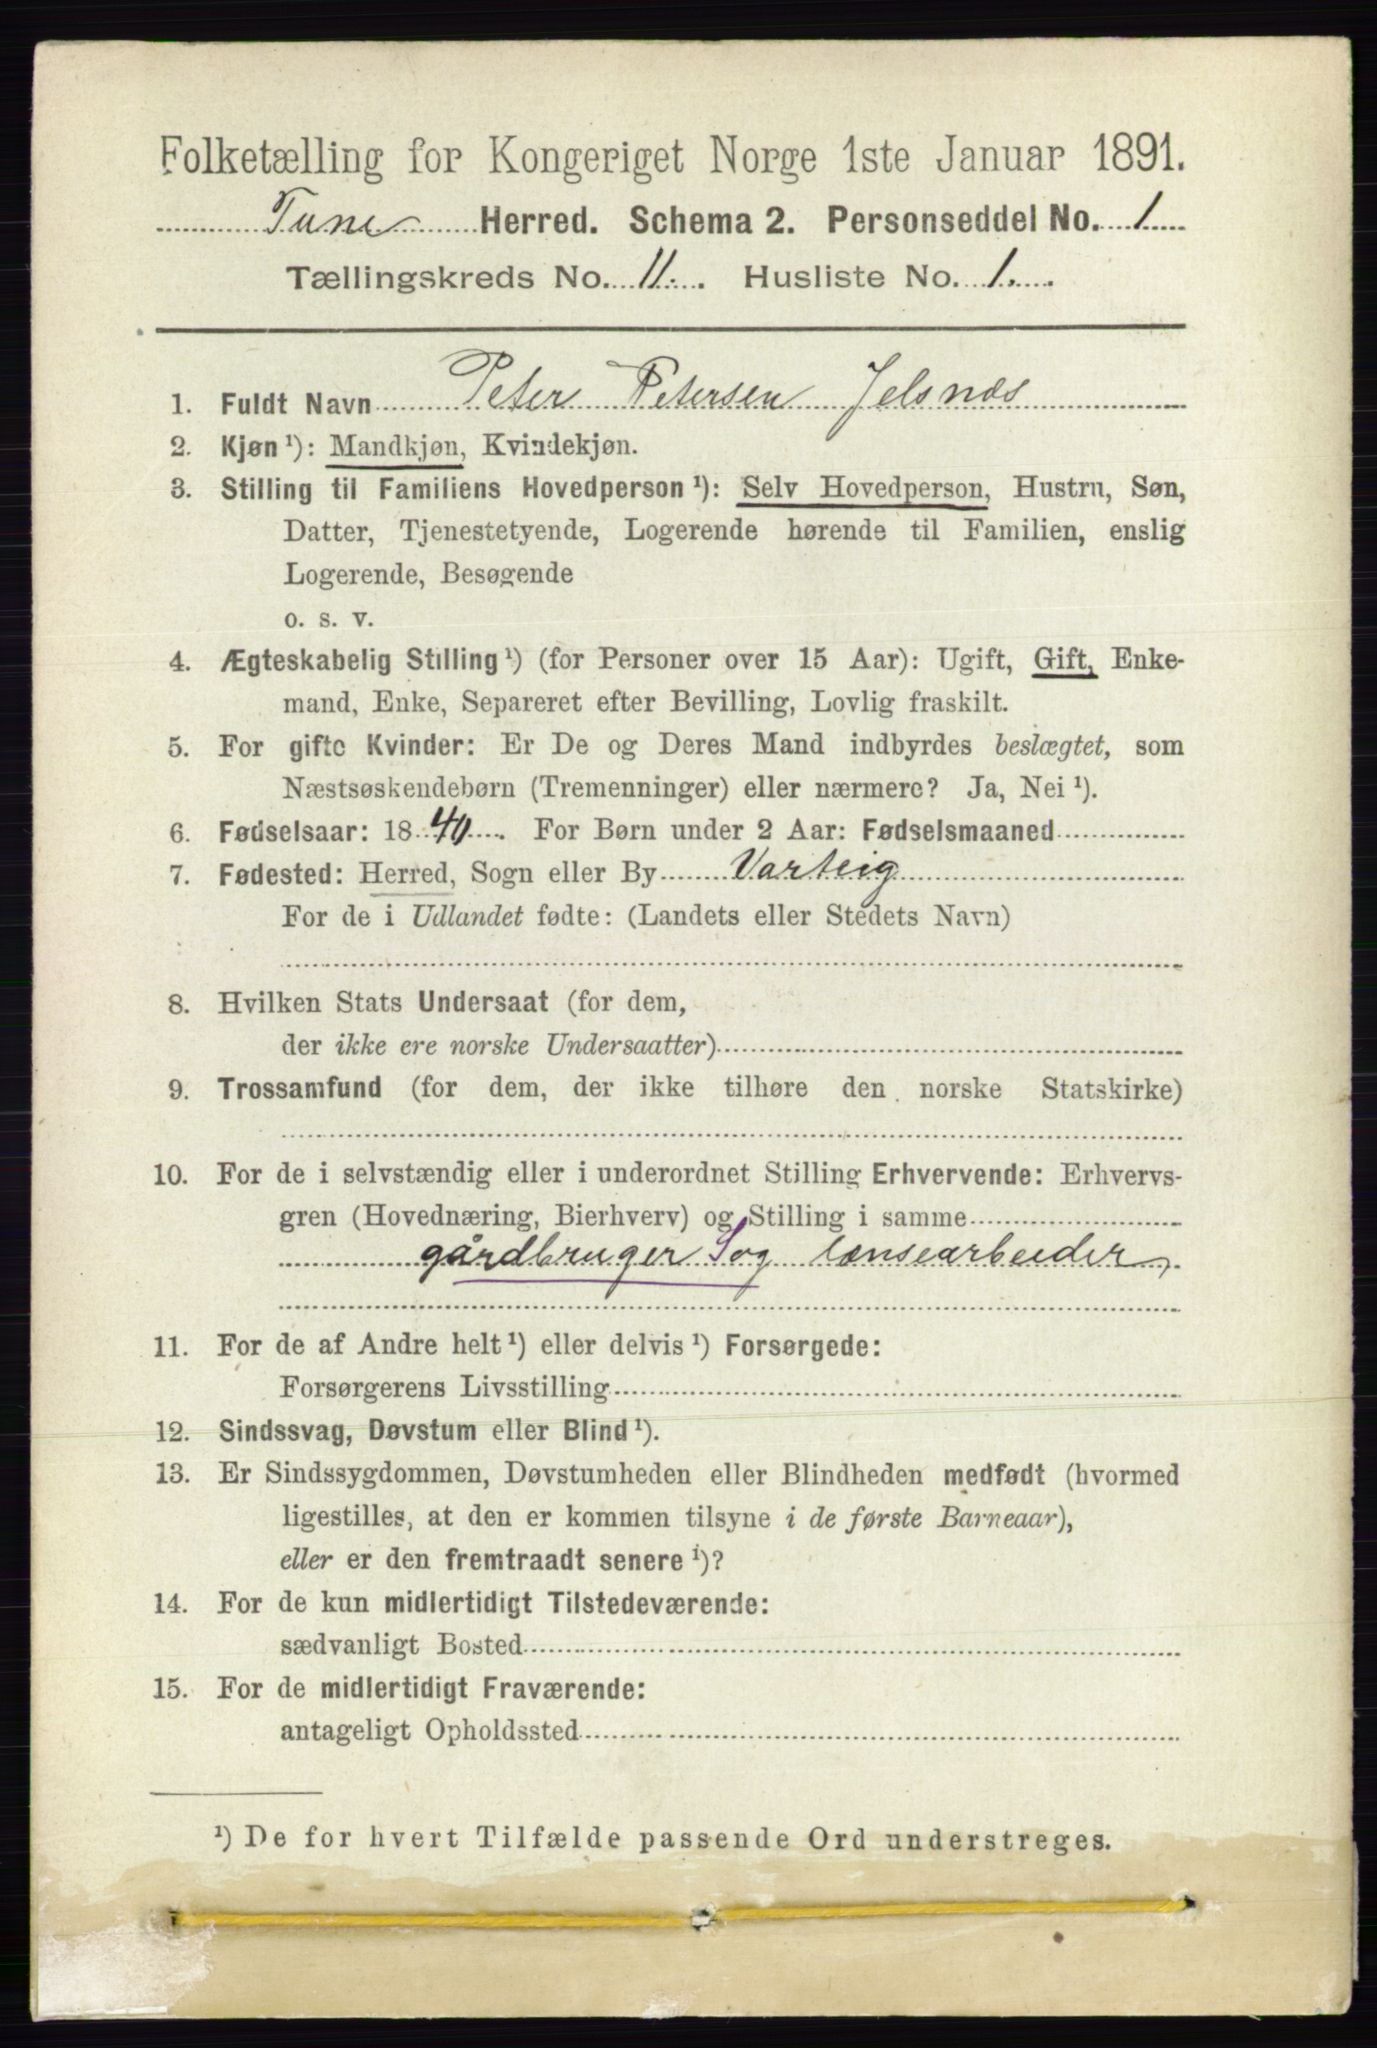 Folketælling for Kongeriget Norge 1ste Januar 1891.
Tune Herred. Schema 2. Personseddel No. 1
Tællingskreds No. 11. Husliste No. 1.
1. Fuldt Navn Peter Petersen Jelsnæs
2. Kjøn ¹): Mandkjøn, Kvindekjøn.
3. Stilling til Familiens Hovedperson ¹): Selv Hovedperson, Hustru, Søn,
Datter, Tjenestetyende, Logerende hørende til Familien, enslig
Logerende, Besøgende
o. s. v.
4. Ægteskabelig Stilling ¹) (for Personer over 15 Aar): Ugift, Gift, Enke-
mand, Enke, Separeret efter Bevilling, Lovlig fraskilt.
5. For gifte Kvinder: Er De og Deres Mand indbyrdes beslægtet, som
Næstsøskendebørn (Tremenninger) eller nærmere? Ja, Nei ¹).
6. Fødselsaar: 1840. For Børn under 2 Aar: Fødselsmaaned
7. Fødested: Herred, Sogn eller By Varteig
For de i Udlandet fødte: (Landets eller Stedets Navn)
8. Hvilken Stats Undersaat (for dem,
der ikke ere norske Undersaatter)
9. Trossamfund (for dem, der ikke tilhøre den norske Statskirke)
10. For de i selvstændig eller i underordnet Stilling Erhvervende: Erhvervs-
gren (Hovednæring, Bierhverv) og Stilling i samme
gårdbruger S og lænsearbeider,
11. For de af Andre helt ¹) eller delvis ¹) Forsørgede:
Forsørgerens Livsstilling
12. Sindssvag, Døvstum eller Blind ¹).
13. Er Sindssygdommen, Døvstumheden eller Blindheden medfødt (hvormed
ligestilles, at den er kommen tilsyne i de første Barneaar),
eller er den fremtraadt senere ¹)?
14. For de kun midlertidigt Tilstedeværende:
sædvanligt Bosted
15. For de midlertidigt Fraværende:
antageligt Opholdssted
¹) De for hvert Tilfælde passende Ord understreges.